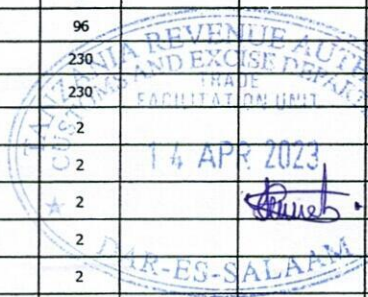 96
230
230
2
2
2
2
2
TANZANIA REVENUE AUTH
CUSTOMS AND EXCISE DEPART
TRADE
FACILITATION UNIT
14 APR 2023
DAR-ES-SALAAM